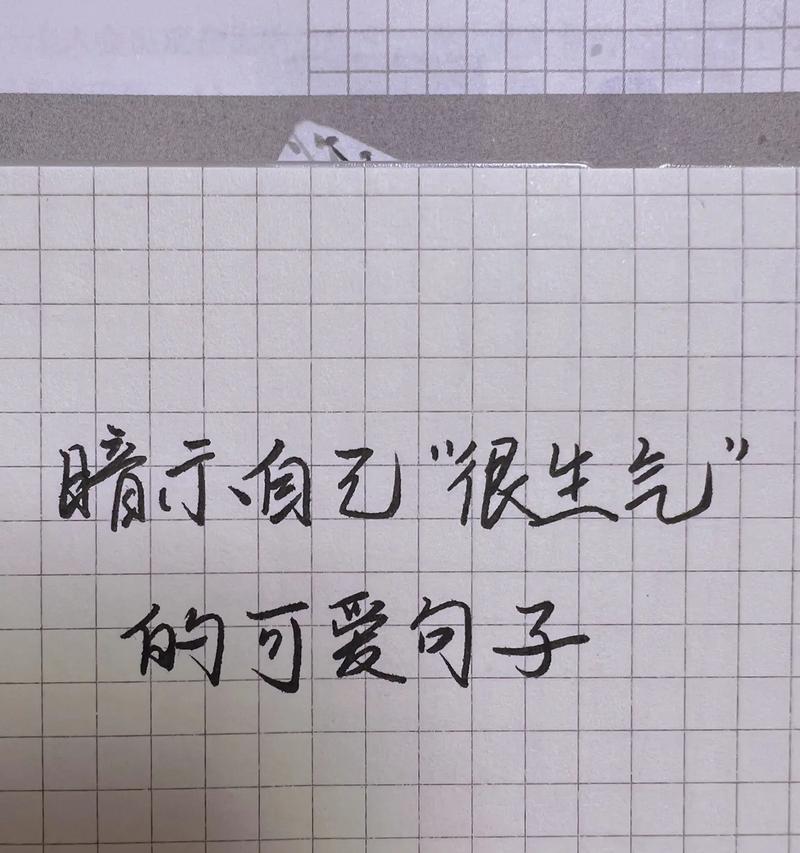 暗示自己“很生气”
的可爱句子